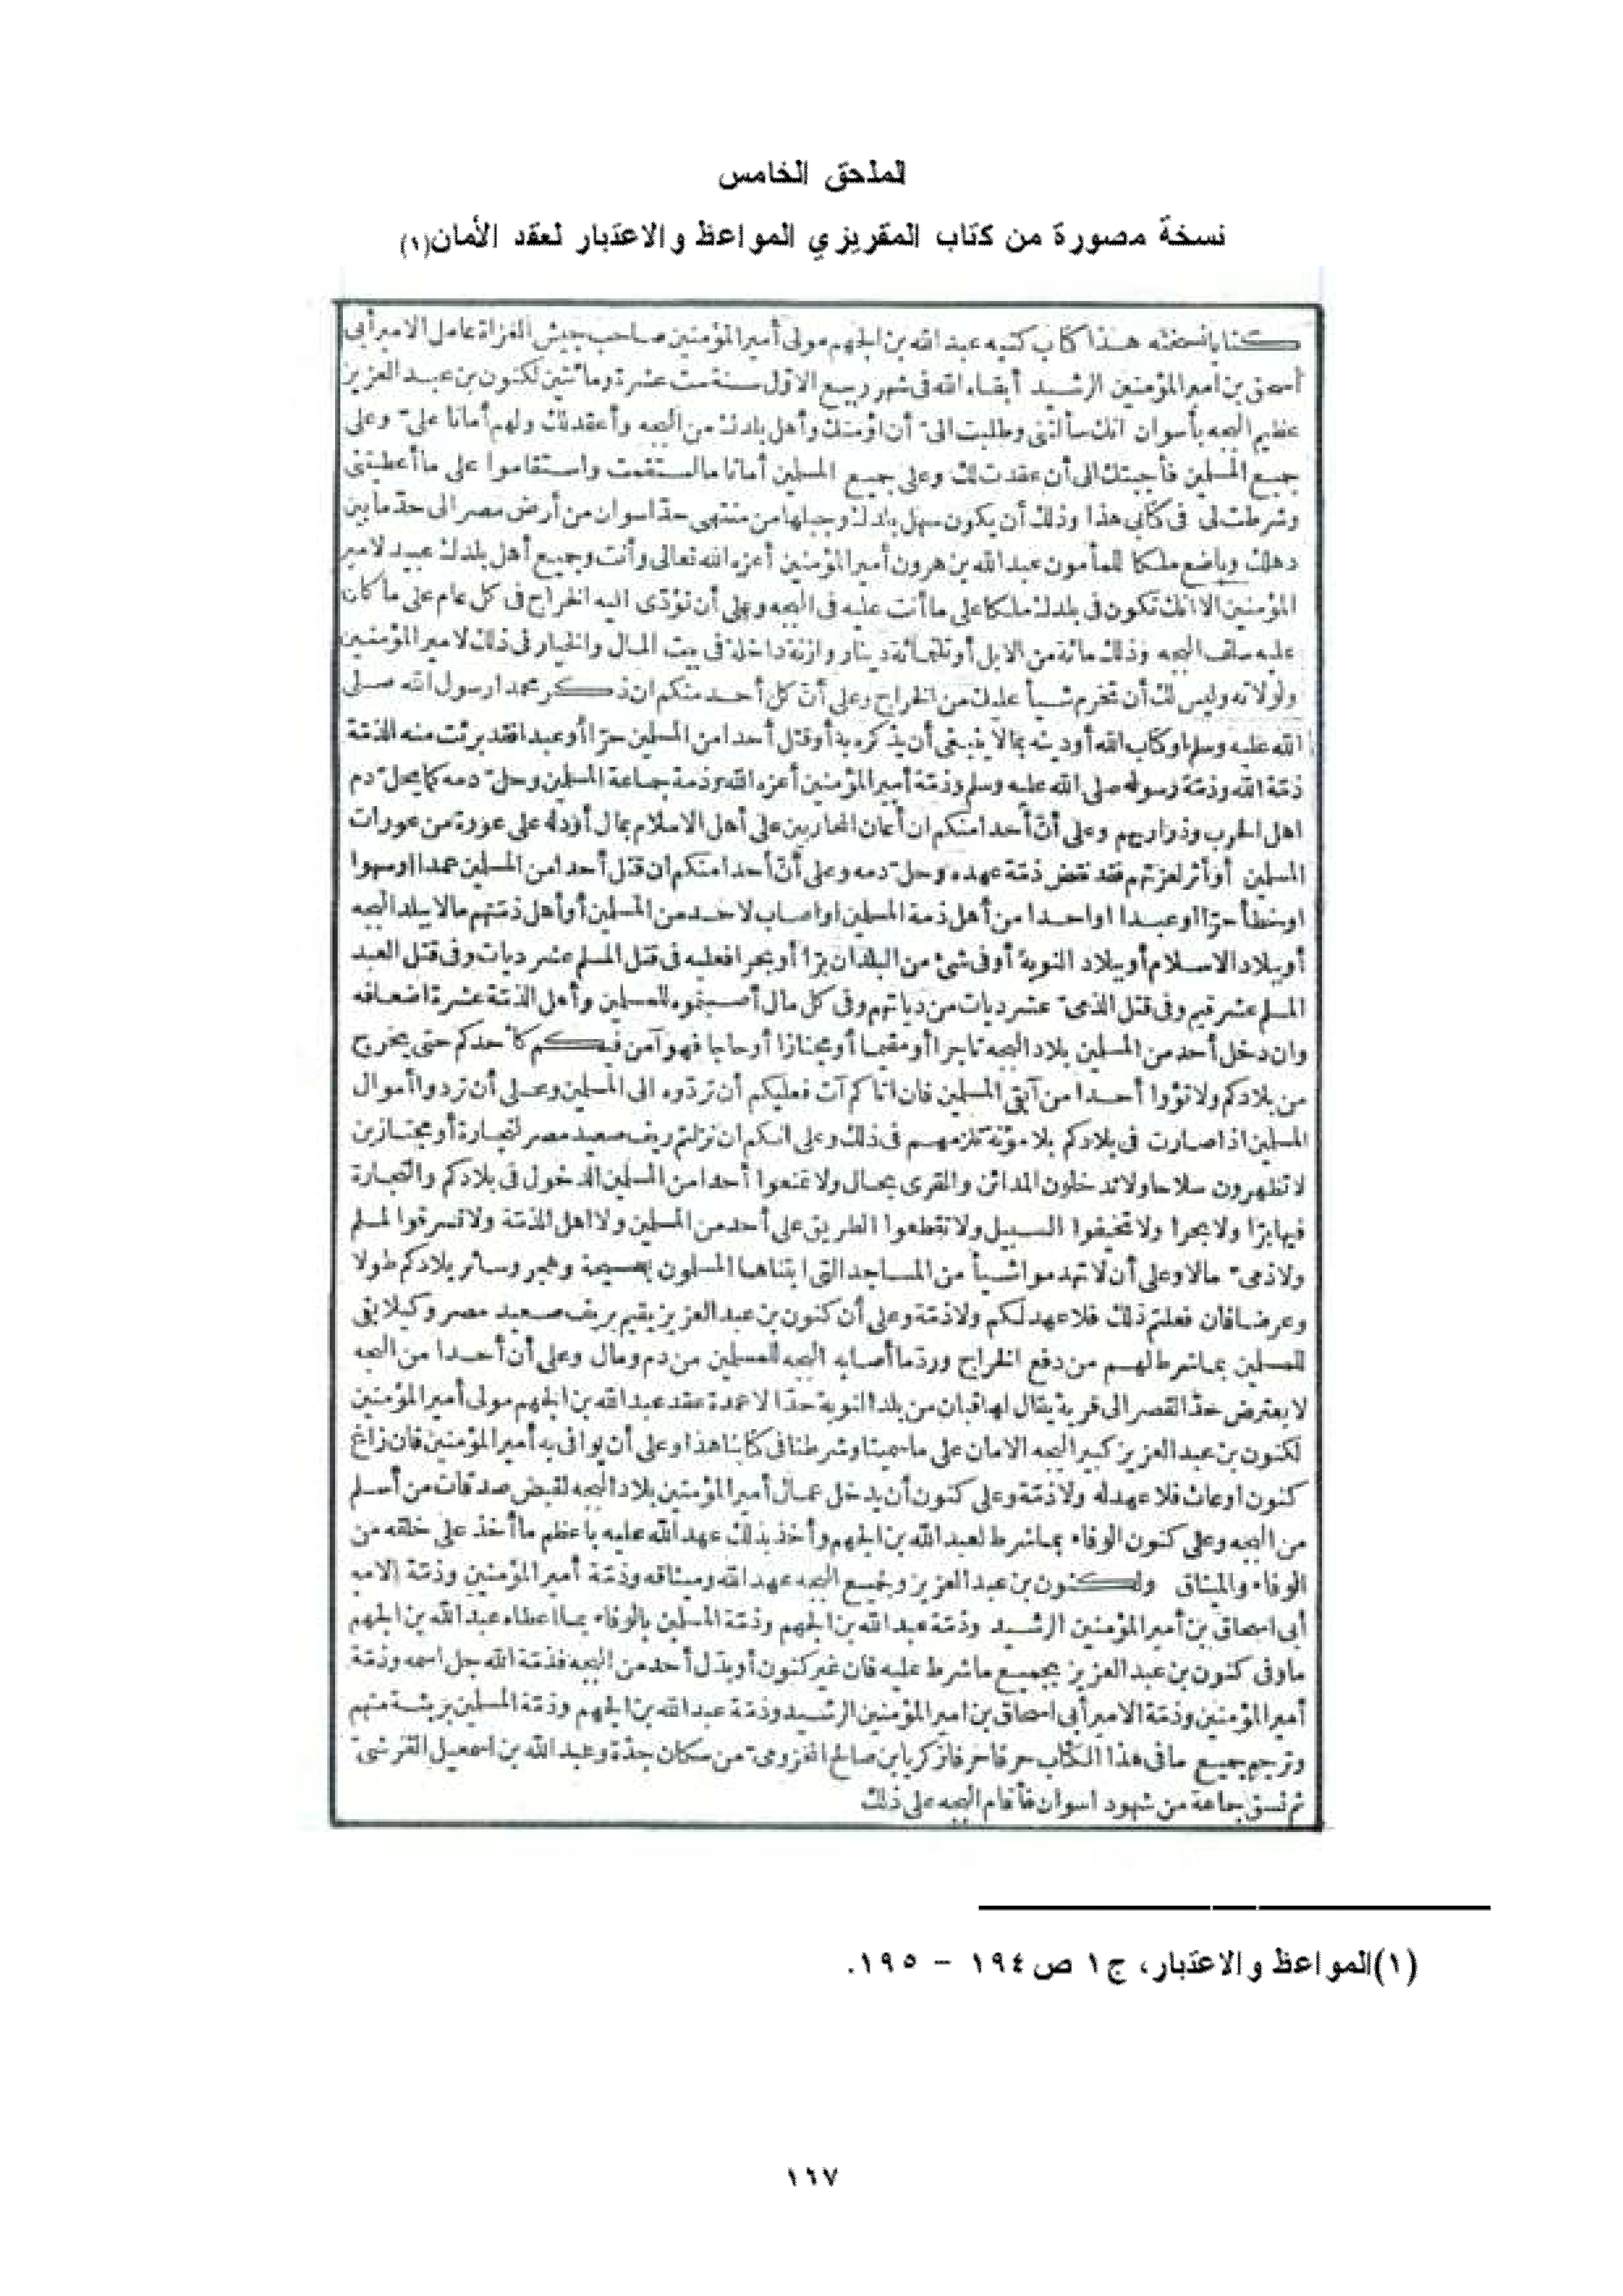 الملحق الخامس
نسخة مصورة من كتاب المقريزي المواعظ والاعتبار لعقد الأمان(١)
كتابا نسخته هذا كتاب كتبه عبد الله بن الجهم مولى أمير المؤمنين صاحب جيش الغزاة عامل الامير أبى
اسحق بن امير المؤمنين الرشيد أبقاه الله فى شهر ربيع الاول سنة ست عشرة ومائتين لكنون بن عبد العزيز
عظيم البجه بأسوان انك سألتنى وطلبت الىّ أن اؤمنك وأهل بلدك من البجه وأعقد لك ولهم أمانا علىّ وعلى
جميع المسلمين فأجبتك الى أن عقدت لك وعلى جميع المسلمين أمانا ما استقمت واستقاموا على ما أعطيتنى
وشرطت لى فى كتابى هذا وذلك أن يكون سهل بلدك وجبلها من منتهى حدّ اسوان من أرض مصر الى حدّ ما بين
دهلك وباضع ملكا للمأمون عبد الله بن هرون أمير المؤمنين أعزه الله تعالى وأنت وجميع أهل بلدك عبيد لامير
المؤمنين الا انك تكون فى بلدك ملكا على ما أنت عليه فى البجه وعلى أن تؤدّى اليه الخراج فى كل عام على ما كان
عليه سلف البجه وذلك مائة من الابل أو ثلثمائة دينار وازنة داخلة فى بيت المال والخيار فى ذلك لامير المؤمنين
ولولاته وليس لك أن تخرم شيأ عليك من الخراج وعلى أنّ كل أحد منكم ان ذكر محمدا رسول الله صلى
الله عليه وسلم او كتاب الله أو دينه بما لا ينبغى أن يذكره به أو قتل أحدا من المسلمين حرّا أو عبدا فقد برئت منه الذمّة
ذمّة الله وذمّة رسوله صلى الله عليه وسلم وذمّة أمير المؤمنين أعزه الله وذمة جماعة المسلمين وحلّ دمه كما يحلّ دم
اهل الحرب وذراريهم وعلى أنّ أحدا منكم ان أعان المحاربين على أهل الاسلام بمال أو دله على عورة من عورات
المسلمين أو أثر لعزتهم فقد نقض ذمّة عهده وحلّ دمه وعلى أنّ أحدا منكم ان قتل أحدا من المسلمين عمدا او سهوا
او خطأ حرّا او عبدا او احدا من أهل ذمة المسلمين او اصاب لاحد من المسلمين أو أهل ذمّتهم مالا ببلد البجه
أو ببلاد الاسلام أو ببلاد النوبة أو فى شئ من البلدان برّا أو بحرا فعليه فى قتل المسلم عشر ديات وفى قتل العبد
المسلم عشر قيم وفى قتل الذمىّ عشر ديات من دياتهم وفى كل مال أصبتموه للمسلمين وأهل الذمّة عشرة اضعافه
وان دخل أحد من المسلمين بلاد البجه تاجرا أو مقيما أو مجتازا أو حاجا فهو آمن فيكم كأحدكم حتى يخرج
من بلادكم ولا تؤوا أحدا من آبقى المسلمين فان اتاكم آت فعليكم أن تردّوه الى المسلمين وعلى أن تردوا أموال
المسلمين اذا صارت فى بلادكم بلا مؤنة تلزمهم فى ذلك وعلى انكم ان نزلتم ريف صعيد مصر لتجارة أو مجتازين
لا تظهرون سلاحا ولا تدخلون المدائن والقرى بحال ولا تمنعوا أحدا من المسلمين الدخول فى بلادكم والتجارة
فيها برّا ولا بحرا ولا تخيفوا السبيل ولا تقطعوا الطريق على أحد من المسلمين ولا اهل الذمّة ولا تسرقوا لمسلم
ولا ذمىّ مالا وعلى أن لا تهدموا شيأ من المساجد التى ابتناها المسلمون بصيحة وهجر وسائر بلادكم طولا
وعرضا فان فعلتم ذلك فلا عهد لكم ولا ذمّة وعلى أن كنون بن عبد العزيز يقيم بريف صعيد مصر وكيلا يفى
للمسلمين بما شرط لهم من دفع الخراج وردّ ما أصابه البجه للمسلمين من دم ومال وعلى أن أحدا من البجه
لا يعترض حدّ القصر الى قرية يقال لها قبان من بلد النوبة حدّا لا عمدة عقد عبد الله بن الجهم مولى أمير المؤمنين
لكنون بن عبد العزيز كبير البجه الامان على ما سمينا وشرطنا فى كتابنا هذا وعلى أن يوافى به أمير المؤمنين فان زاغ
كنون او عاث فلا عهد له ولا ذمّة وعلى كنون أن يدخل عمال أمير المؤمنين بلاد البجه لقبض صدقات من أسلم
من البجه وعلى كنون الوفاء بما شرط لعبد الله بن الجهم وأخذ بذلك عهد الله عليه بأعظم ما أخذ على خلقه من
الوفاء والميثاق ولكنون بن عبد العزيز ولجميع البجه عهد الله وميثاقه وذمّة أمير المؤمنين وذمّة الامير
أبى اسحاق بن أمير المؤمنين الرشيد وذمّة عبد الله بن الجهم وذمّة المسلمين بالوفاء بما اعطاه عبد الله بن الجهم
ما وفى كنون بن عبد العزيز بجميع ما شرط عليه فان غير كنون أو بدّل أحد من البجه فذمّة الله جل اسمه وذمّة
أمير المؤمنين وذمّة الامير أبى اسحاق بن امير المؤمنين الرشيد وذمّة عبد الله بن الجهم وذمّة المسلمين بريئة منهم
وترجم جميع ما فى هذا الكتاب حرفا حرفا زكريا بن صالح المخزومىّ من سكان جدّة وعبد الله بن اسمعيل القرشىّ
ثم نسق جماعة من شهود اسوان فأقام البجه على ذلك
(١)المواعظ والاعتبار، ج١ ص١٩٤ – ١٩٥.
١٦٧